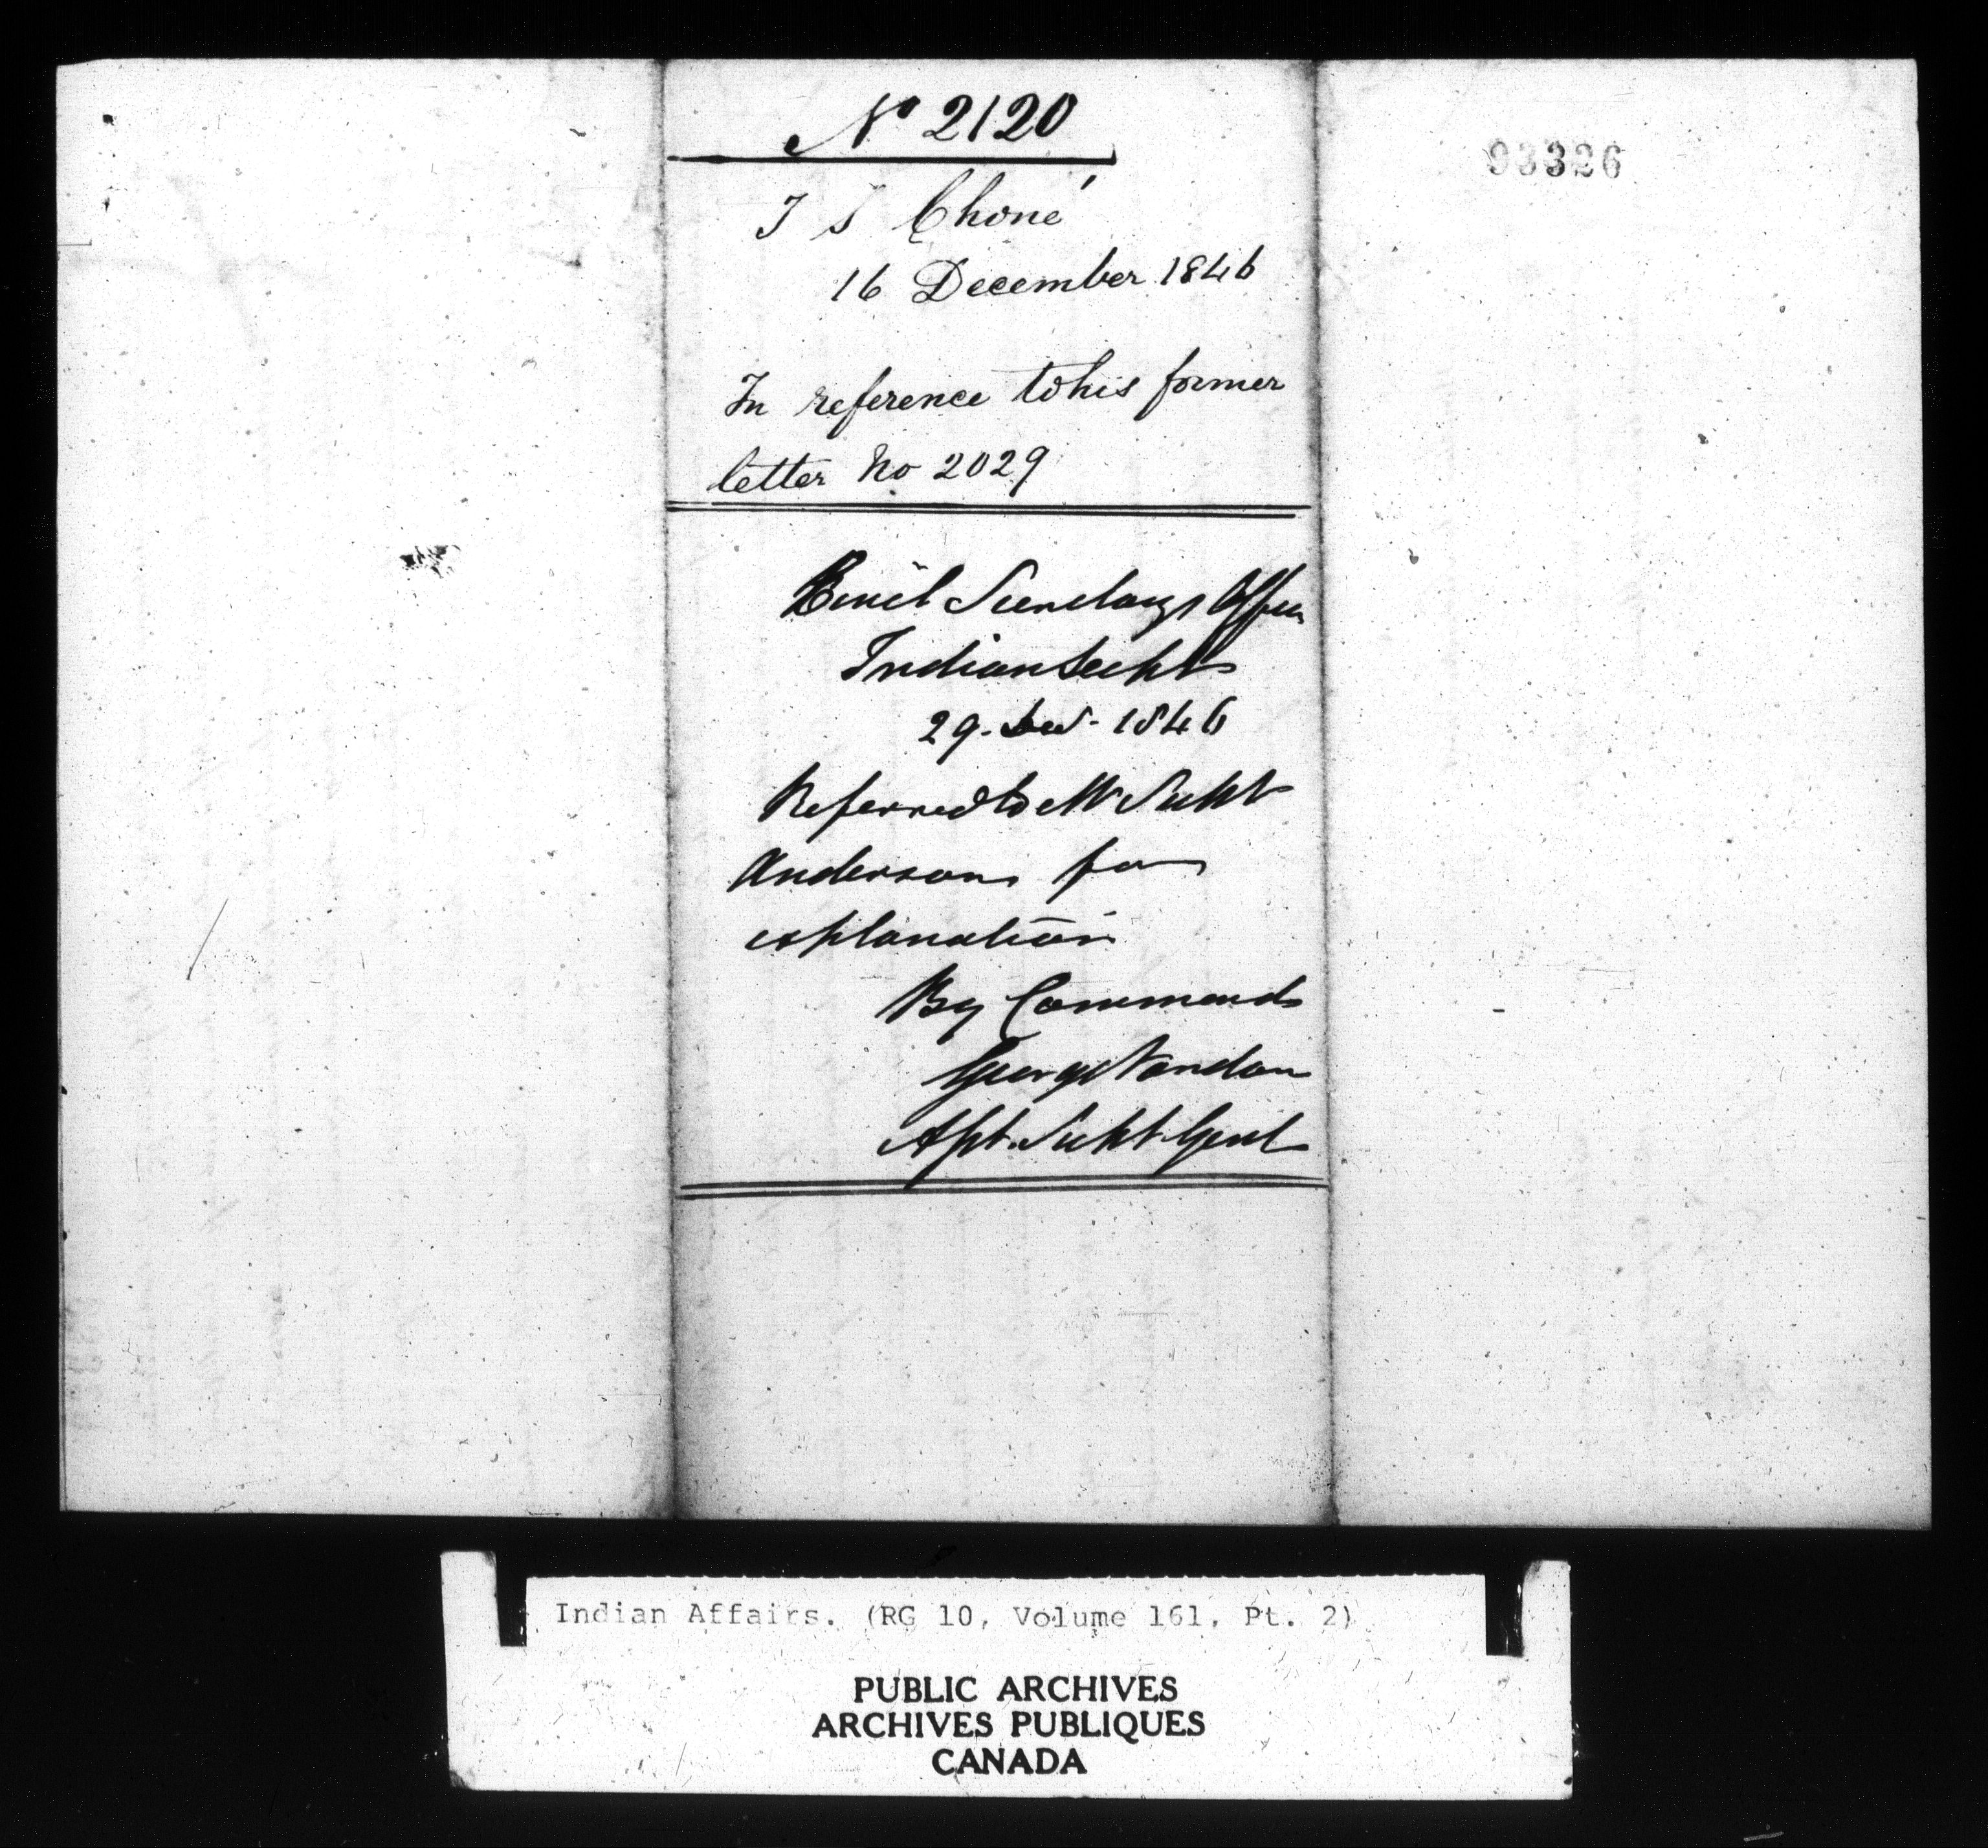 No 2120
93326
J S Choné
16 December 1846
In reference to his former
letter No 2029
Civil Secretarys Office
Indian Dept
29. Dec. 1846
Referred to Mr Supt
Anderson for
explanation
By Command
George Vardon
Asst. Supt Genl
Indian Affairs. (RG 10, Volume 161, Pt. 2)
PUBLIC ARCHIVES
ARCHIVES PUBLIQUES
CANADA